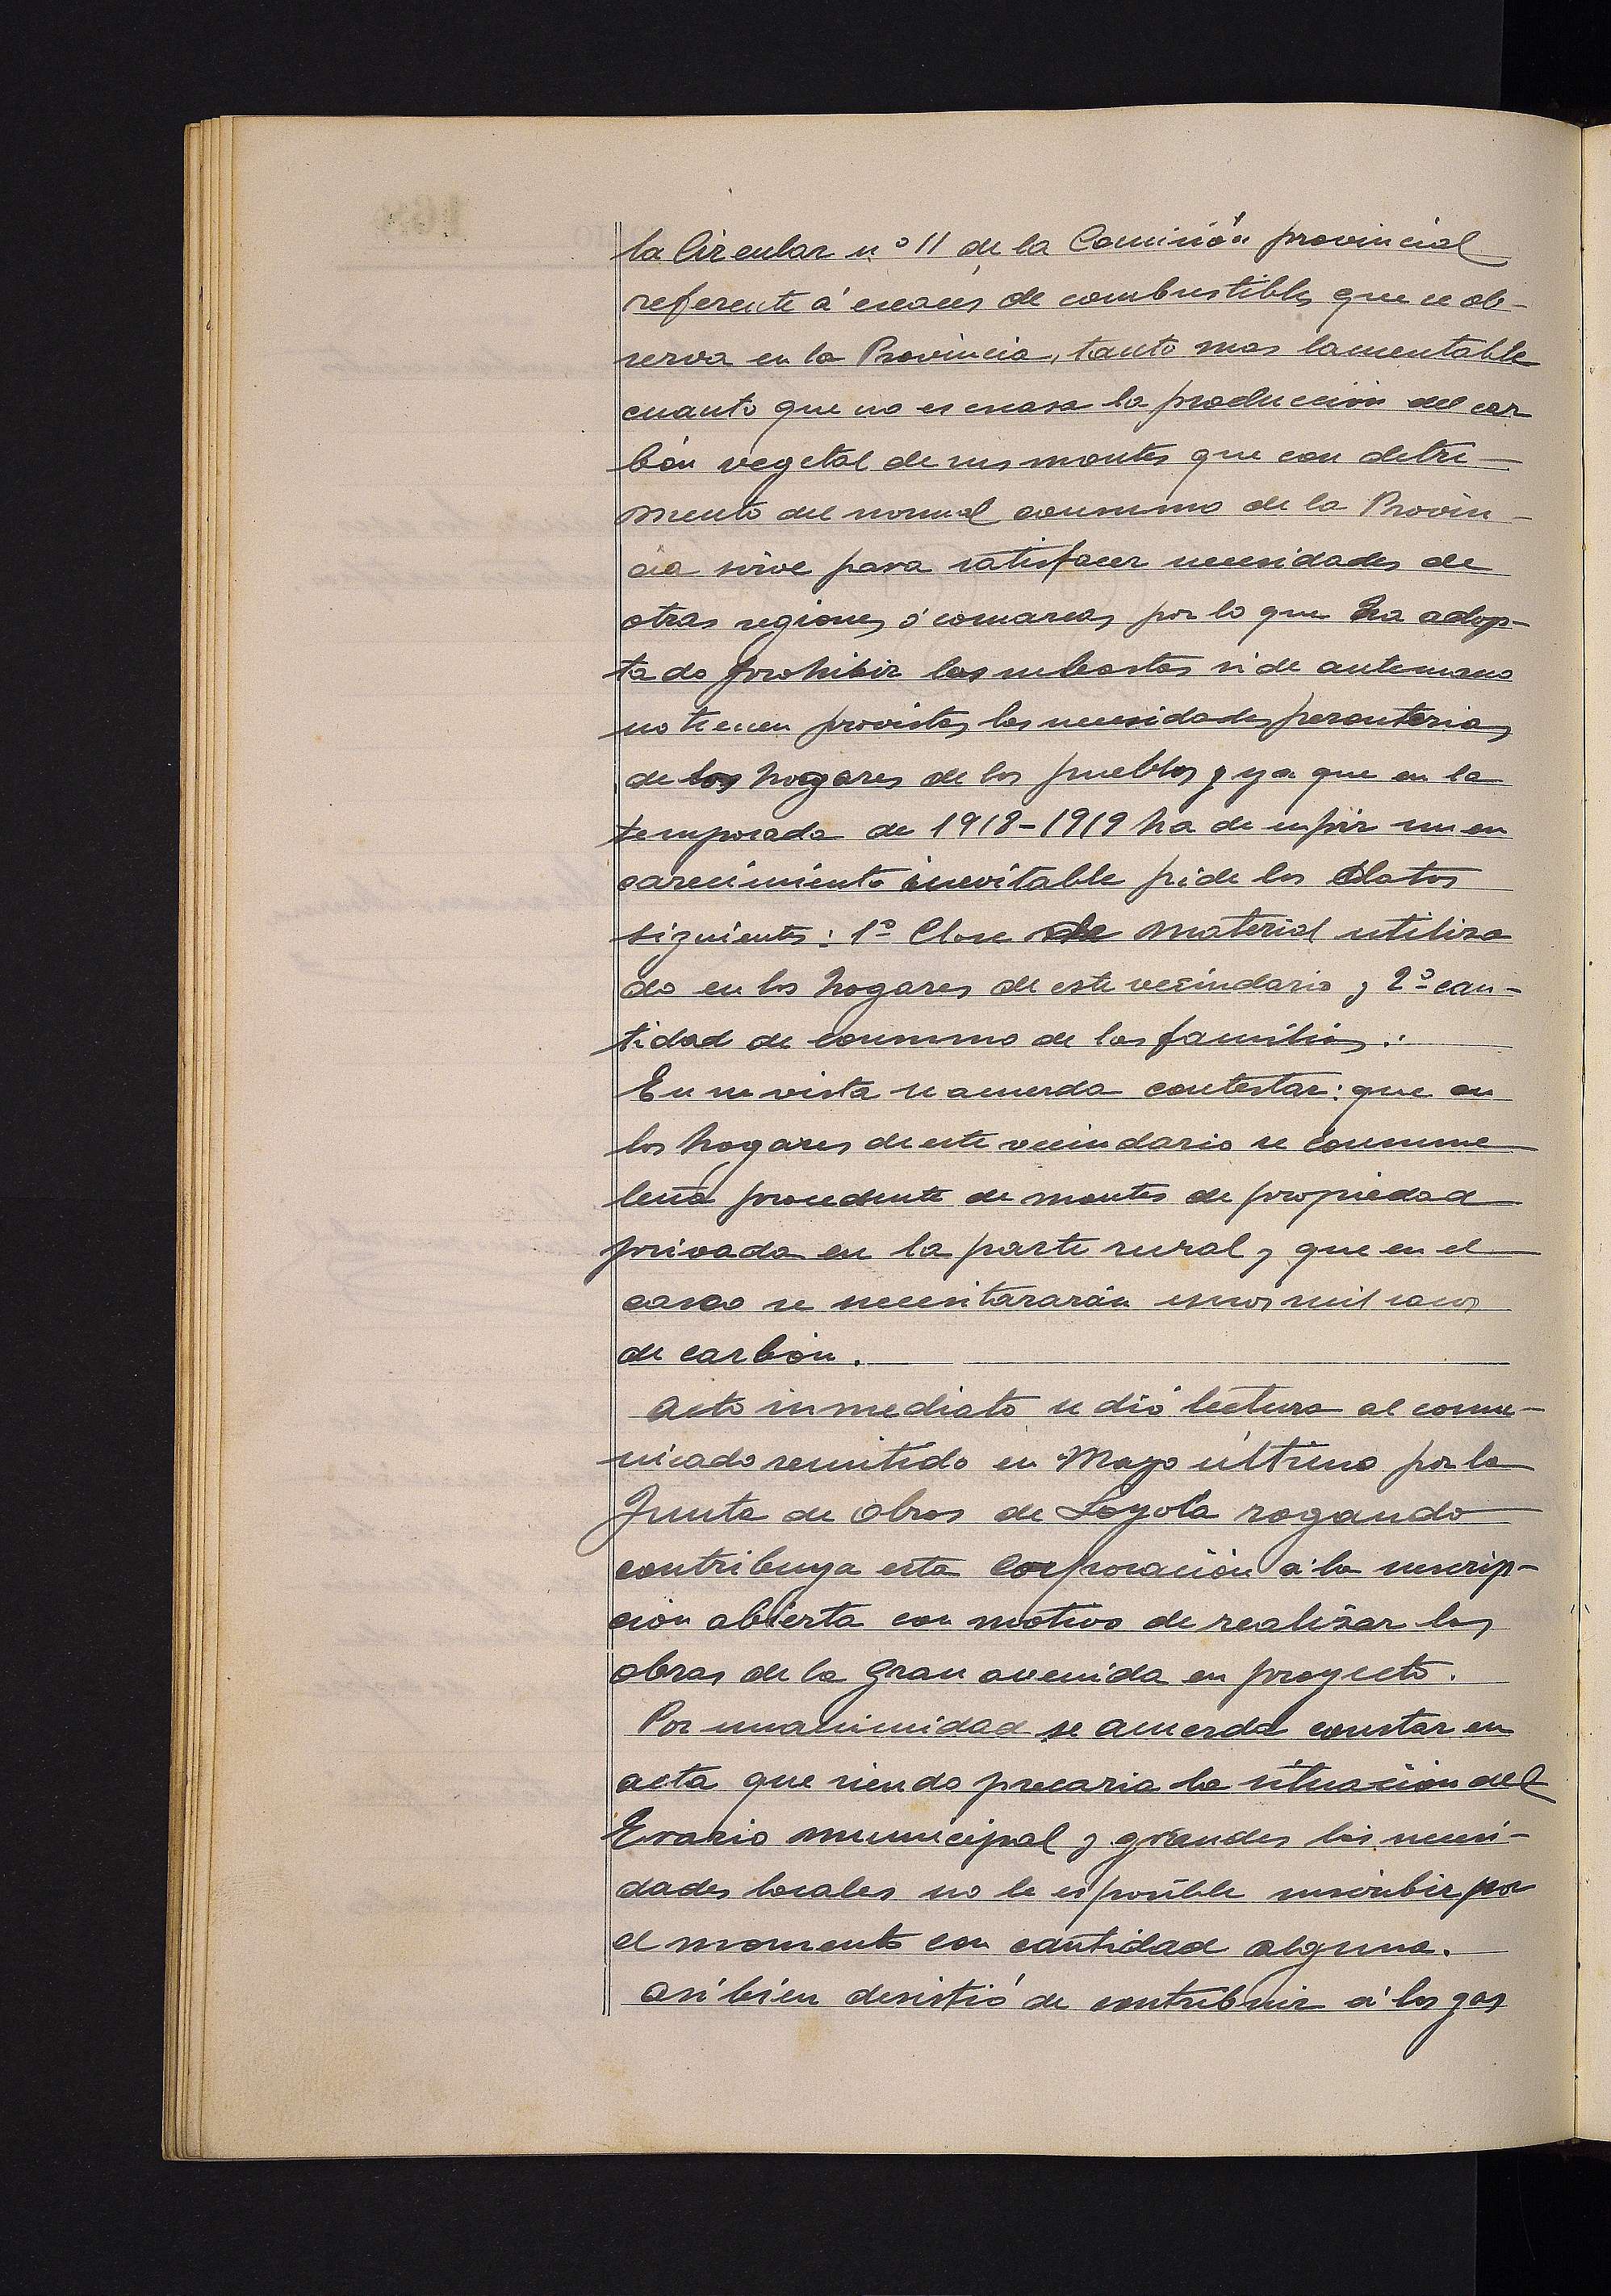 la Circular nº 11 de la Comisión provincial
referente á escasés de combustibles que se ob-
serva en la Provincia, tanto mas lamentable
cuanto que no es escasa la producción del car
bón vegetal de sus montes que con detri-
mento del normal consumo de la Provin-
cia sirve para satisfacer necesidades de
otras regiones ó comarcas, por lo que ha adop-
tado prohibir las subastas si de antemano
no tienen provistas las necesidades perentorias
de los hogares de los pueblos y ya que en la
temporada de 1918-1919 ha de sufrir un en
carecimiento inevitable pide los datos
siguientes: 1º Clase de material utiliza
do en los hogares de este vecindario y 2º can-
tidad de consumo de las familias.
En su vista se acuerda contestar: que en
los hogares de este vecindario se consume
leña procedente de montes de propiedad
privada en la parte rural y que en el
casco se necesitararán unos mil sacos
de carbón.
Acto inmediato se dió lectura al comu-
nicado remitido en Mayo último por la
Junta de Obras de Loyola rogando
contribuya esta Corporación á la suscrip-
ción abierta con motivo de realizar las
obras de la Gran avenida en proyecto.
Por unanimidad se acuerda constar en
acta que siendo precaria la situación del
Erario municipal y grandes las necesi-
dades locales no le es posible suscribir por
el momento con cantidad alguna.
Asi bien desistió de contribuir á los gas